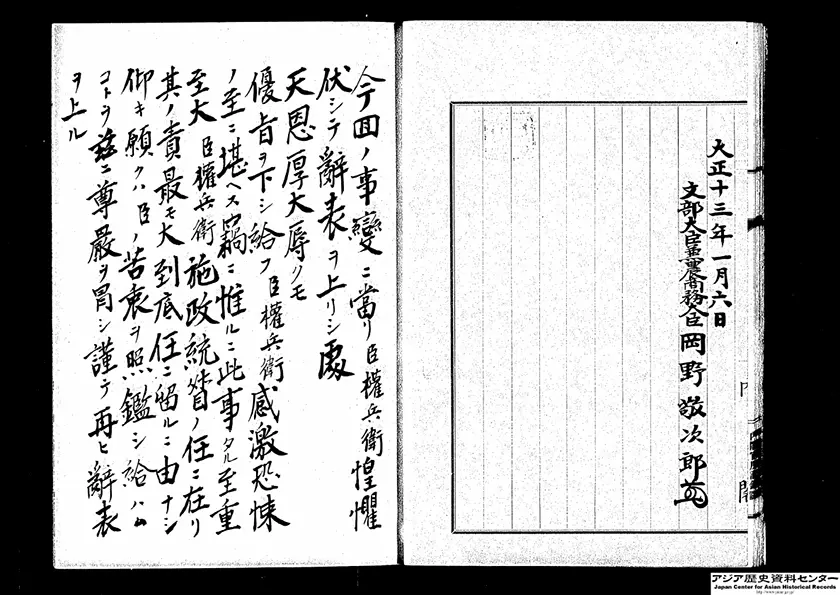 大正十三年一月六日
文部大臣兼農商務大臣 岡野敬次郎
内閣
今回ノ事變ニ當リ臣權兵衛惶懼
伏シテ辭表ヲ上リシ處
天恩厚大辱クモ
優旨ヲ下シ給フ臣權兵衛感激恐悚
ノ至ニ堪ヘス竊ニ惟ルニ此事タル至重
至大臣權兵衛施政統督ノ任ニ在リ
其ノ責最モ大到底任ニ留ルニ由ナシ
仰キ願クハ臣ノ苦衷ヲ照鑑シ給ハム
コトヲ玆ニ尊嚴ヲ冒シ謹テ再ヒ辭表
ヲ上ル
アジア歴史資料センター
Japan Center for Asian Historical Records
http://www.jacar.go.jp/